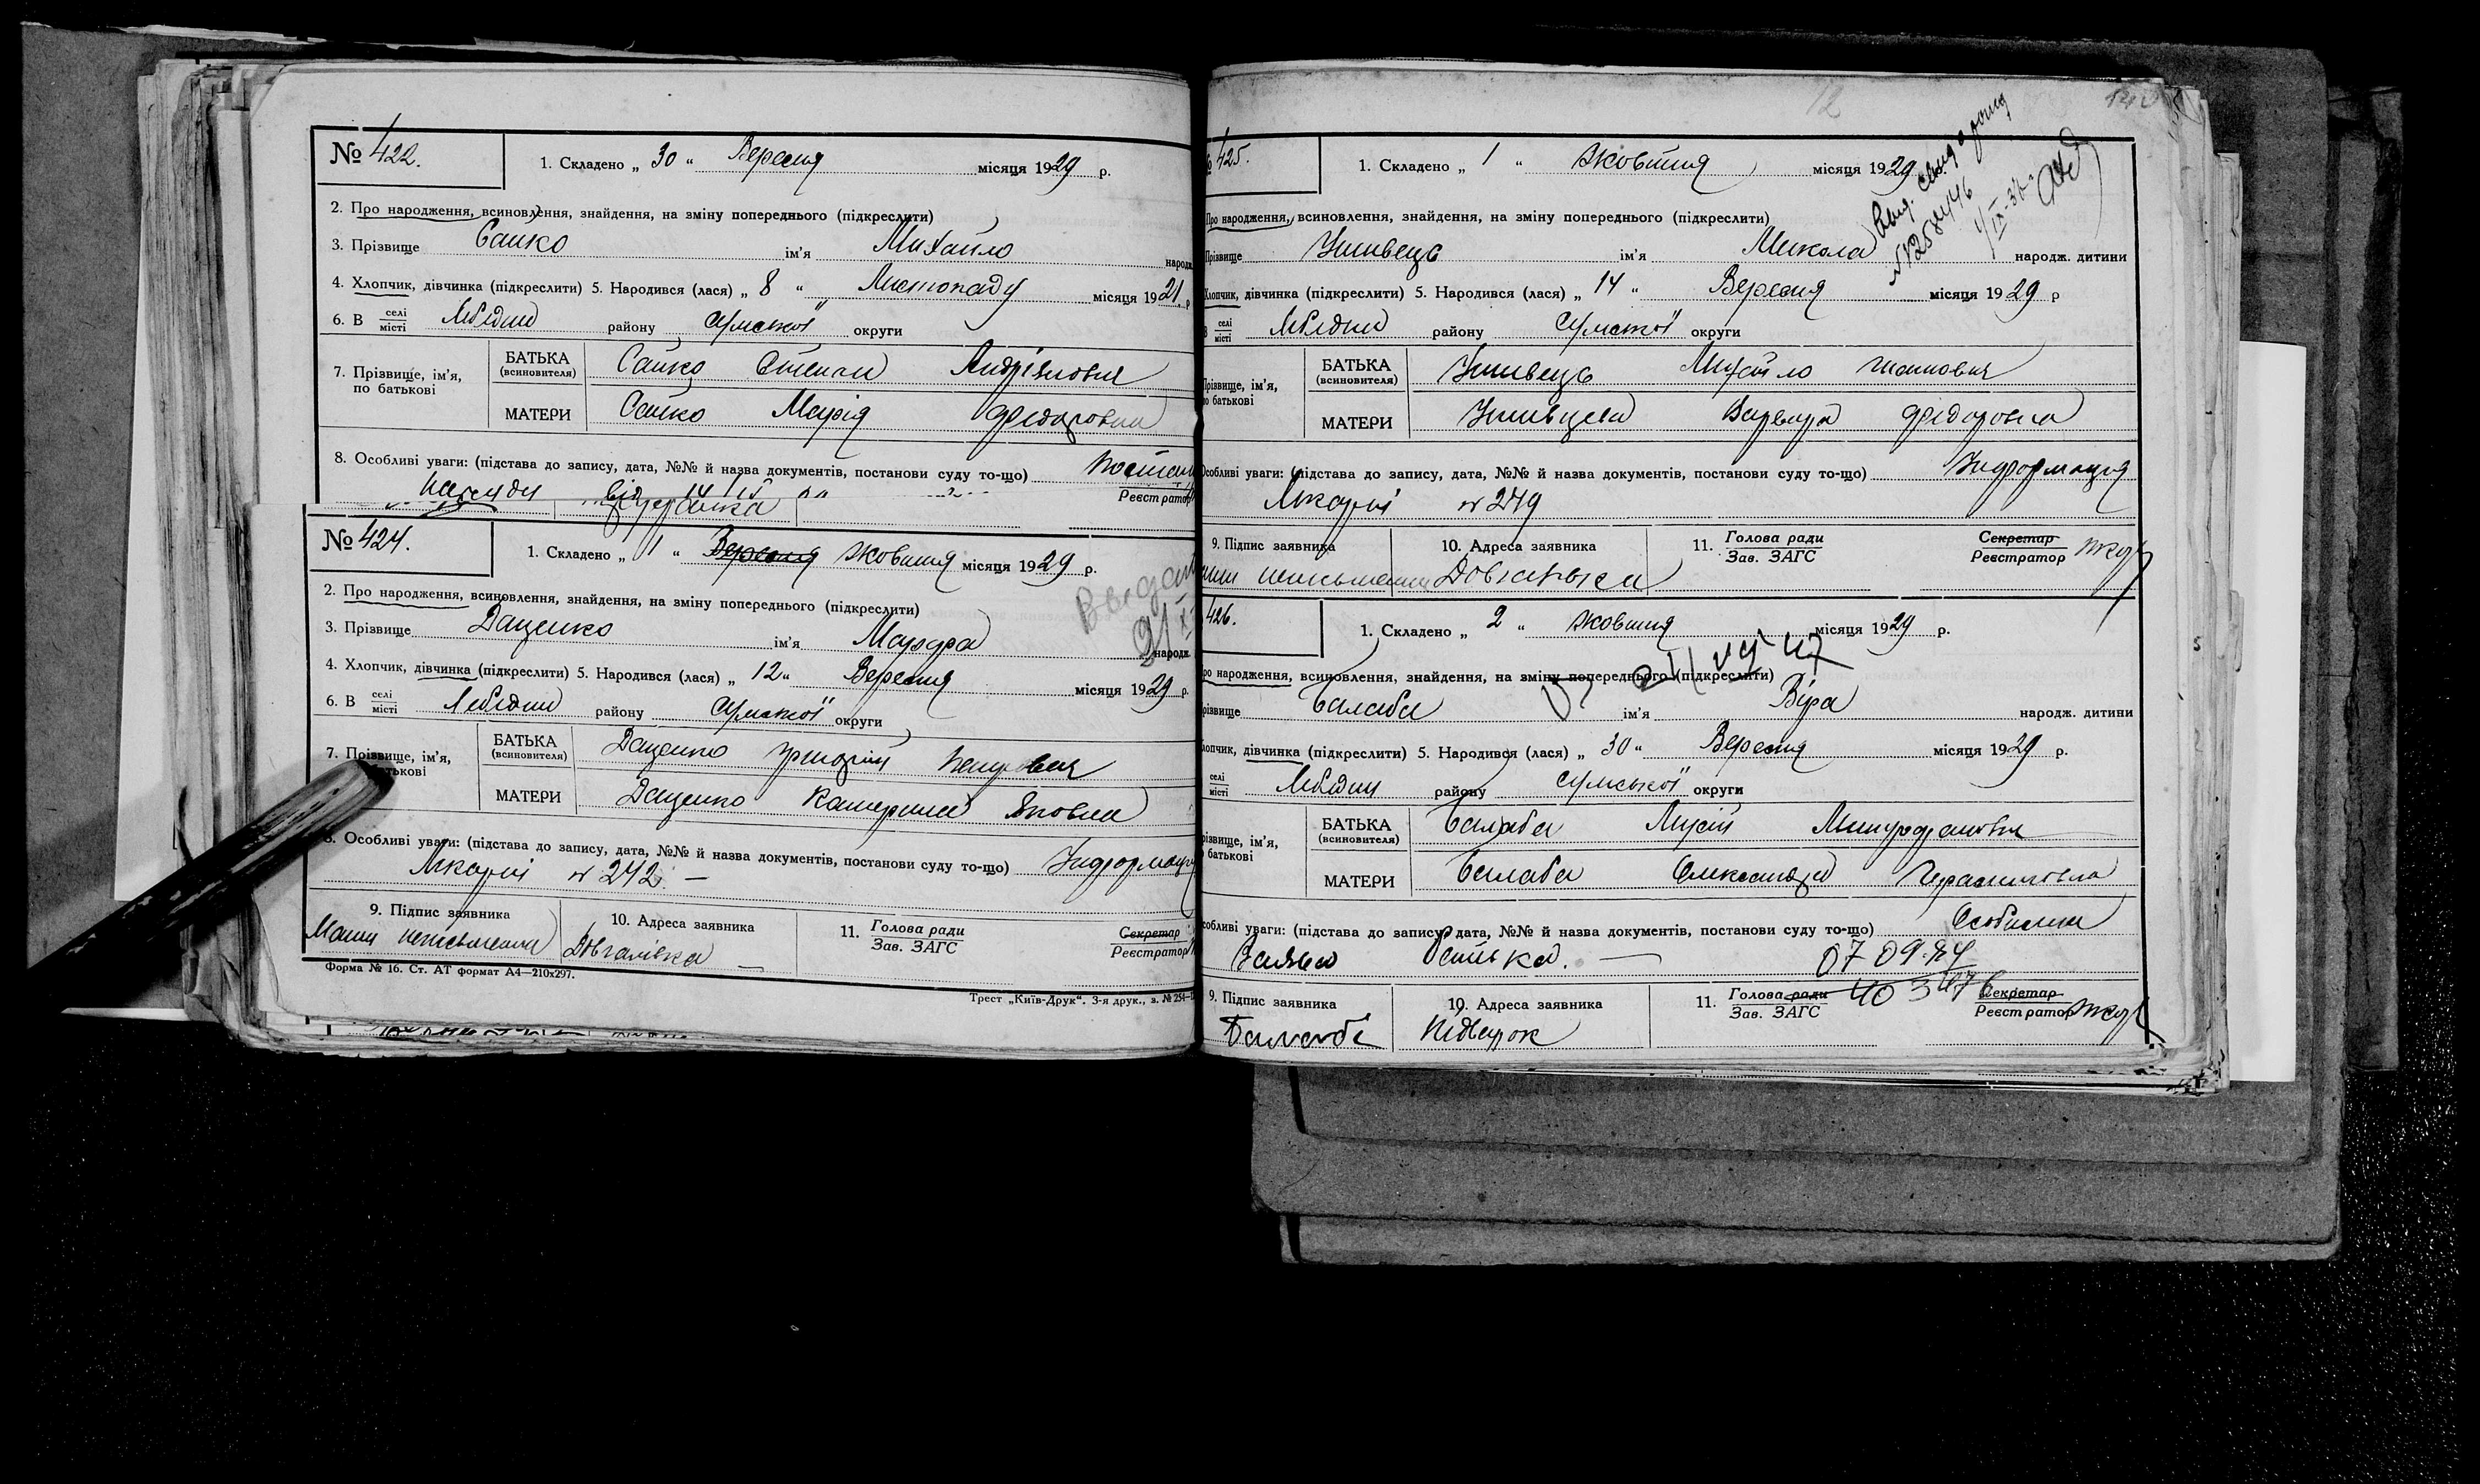 № 422.
1. Складено „ 30 “ Вересня місяця 1929 р.
2. Про народження, всиновлення, знайдення, на зміну попереднього (підкреслити)
3. Прізвище Сайко ім'я Михайло народж.
4. Хлопчик, дівчинка (підкреслити) 5. Народився (лася) „ 8 “ Листопаду місяця 1921. р
6. В селі місті Лебедин району Сумської округи
7. Прізвище, ім'я, по батькові
БАТЬКА (всиновителя) Сайко Степан Андріянович
МАТЕРИ Сайко Марія Федоровна
8. Особливі уваги: (підстава до запису, дата, №№ й назва документів, постанови суду то-що)
від 14/IX
Реєстратор
№ 424.
1. Складено „ 1 “ Вересня Жовтня місяця 1929 р.
2. Про народження, всиновлення, знайдення, на зміну попереднього (підкреслити)
3. Прізвище Даценко ім'я Марфа народж.
4. Хлопчик, дівчинка (підкреслити) 5. Народився (лася) „ 12 “ Вересня місяця 1929 р.
6. В селі місті Лебедин району Сумської округи
7. Прізвище, ім'я, батькові
БАТЬКА (всиновителя) Даценко Григорій Петрович
МАТЕРИ Даценко Катерина Яковна
8. Особливі уваги: (підстава до запису, дата, №№ й назва документів, постанови суду то-що) Інформація
Лікарні № 242. –
9. Підпис заявника 10. Адреса заявника 11. Голова ради Зав. ЗАГС Секретар Реєстратор
Мати неписьменна Довгалівка –
Форма № 16. Ст. АТ формат А4—210х297.
Трест „Київ-Друк“. 3-я друк., з. № 254
12
№ 425.
1. Складено „ 1 “ Жовтня місяця 1929
Про народження, всиновлення, знайдення, на зміну попереднього (підкреслити)
Прізвище Ушивець ім'я Микола народж. дитини
Хлопчик, дівчинка (підкреслити) 5. Народився (лася) „ 14 “ Вересня місяця 1929 р
В селі місті Лебедин району Сумської округи
Прізвище, ім'я, по батькові
БАТЬКА (всиновителя) Ушивець Михайло Іванович
МАТЕРИ Ушивцева Варвара Федоровна
Особливі уваги: (підстава до запису, дата, №№ й назва документів, постанови суду то-що) Інформація
Лікарні № 249
9. Підпис заявника 10. Адреса заявника 11. Голова ради Зав. ЗАГС Секретар Реєстратор
неписьменна Довгалівка
426.
1. Складено „ 2 “ Жовтня місяця 1929 р.
Про народження, всиновлення, знайдення, на зміну попереднього (підкреслити)
Прізвище Балаба ім'я Віра народж. дитини
Хлопчик, дівчинка (підкреслити) 5. Народився (лася) „ 30 “ Вересня місяця 1929 р.
селі місті Лебедин району Сумської округи
Прізвище, ім'я, батькові
БАТЬКА (всиновителя) Балаба Митрофанович
МАТЕРИ Балаба Олександра Герасимовна
Особливі уваги: (підстава до запису, дата, №№ й назва документів, постанови суду то-що) Особиста
Заява батька. –
07 09.84
9. Підпис заявника 10. Адреса заявника 11. Голова ради Зав. ЗАГС Секретар Реєстратор
Балаба Підварок